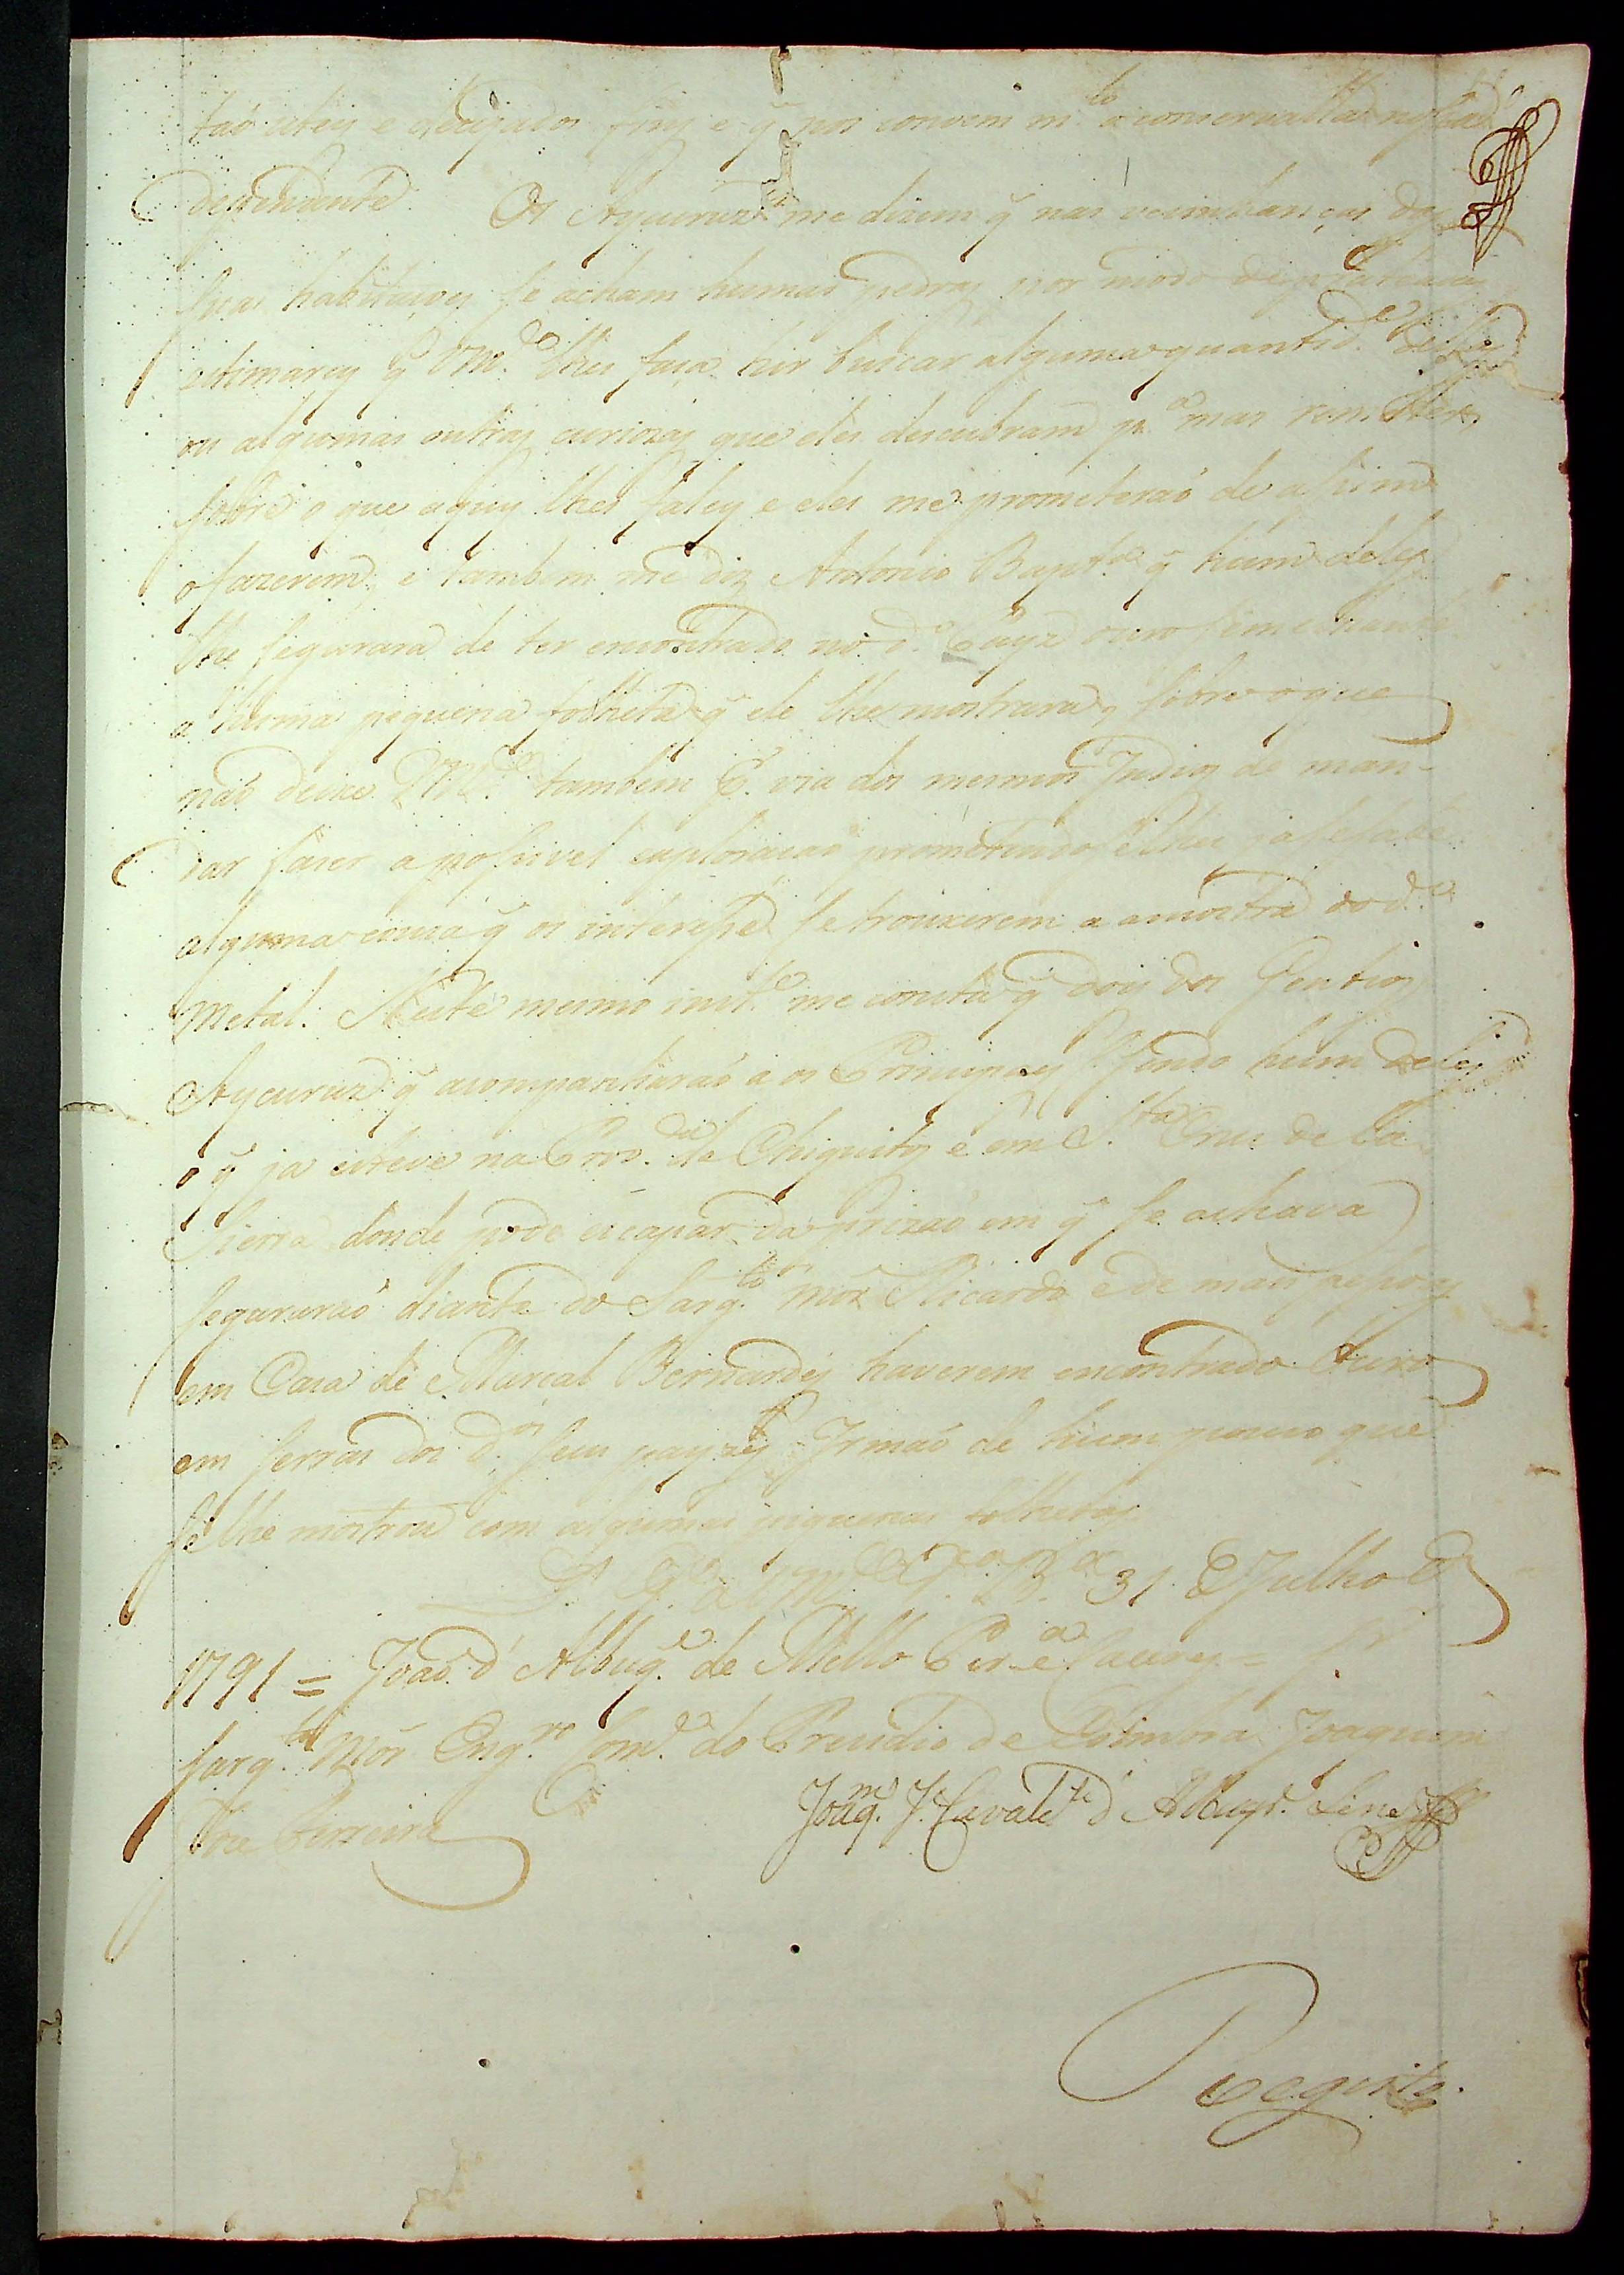 taõ uteis e dezejados fins e q̃ nos convem m.to a conservalla
dependente. Os Aycuruz me dizem q̃ nas vezinhanças das
suas habitaçoes se acham humas pedras por modo de
estimarey q̃ Vm.ce lhes faça hir buscar alguma quantid.e dellas
ou algumas outras curiozas que eles descubram p.a mas remeter
sobre o que aquy lhes faley e eles me prometeraõ de assim
o fazerem; e tambem me diz Antonio Bapt.a q̃ hum deles
lhe segurara de ter encontrado no d.o Payz ouro semelhante
a huma piquena folheta q̃ ele lhe mostrara, sobre o que
naõ deixe Vm.ce tambem P. via dos mesmos Indios de man-
dar fazer a possivel exploraçaõ prometendoselhes
alguma couza q̃ os interesse se trouxerem a amostra do d.o
Metal. Neste mesmo inst.e me consta q̃ dois dos Gentios
Aycuruz q̃ acompanharaõ a os Principaes sendo hum deles
o q̃ ja esteve na Prov.cia de Chiquitos e em S.ta Cruz de la
Sierra donde pode escapar da prizaõ em q̃ se achava
seguraraõ diante do Sarg.to mór Ricardo e de mais pessoas
em Caza de Marcal Bernardes haverem encontrado Ouro
em serras dos d.os seus payzes Irmaõ de hum pouco que
se lhe mostrou com algumas piquenas folhetas.
D. G.e a Vm.ce V.a B.a 31 de Julho de
1791 = Joaõ d'Albuq.e de Mello Per.a e Caceres = S.r
Sarg.to Mór Eng.ro Com.e do Prezidio de Coimbra Joaquim
Joze Ferreira
Joaq.m J.e Cavalc.te d'Albuqr.e Lins
Registe